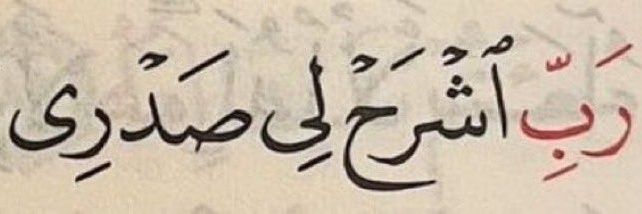 رَبِّ ٱشْرَحْ لِي صَدْرِي